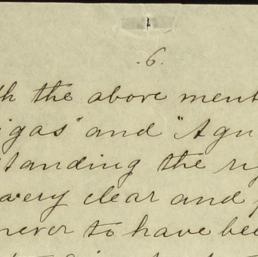 1
. 6 .
th the above ment
igas" and "Agn
standing the ri
very clear and
never to have bee